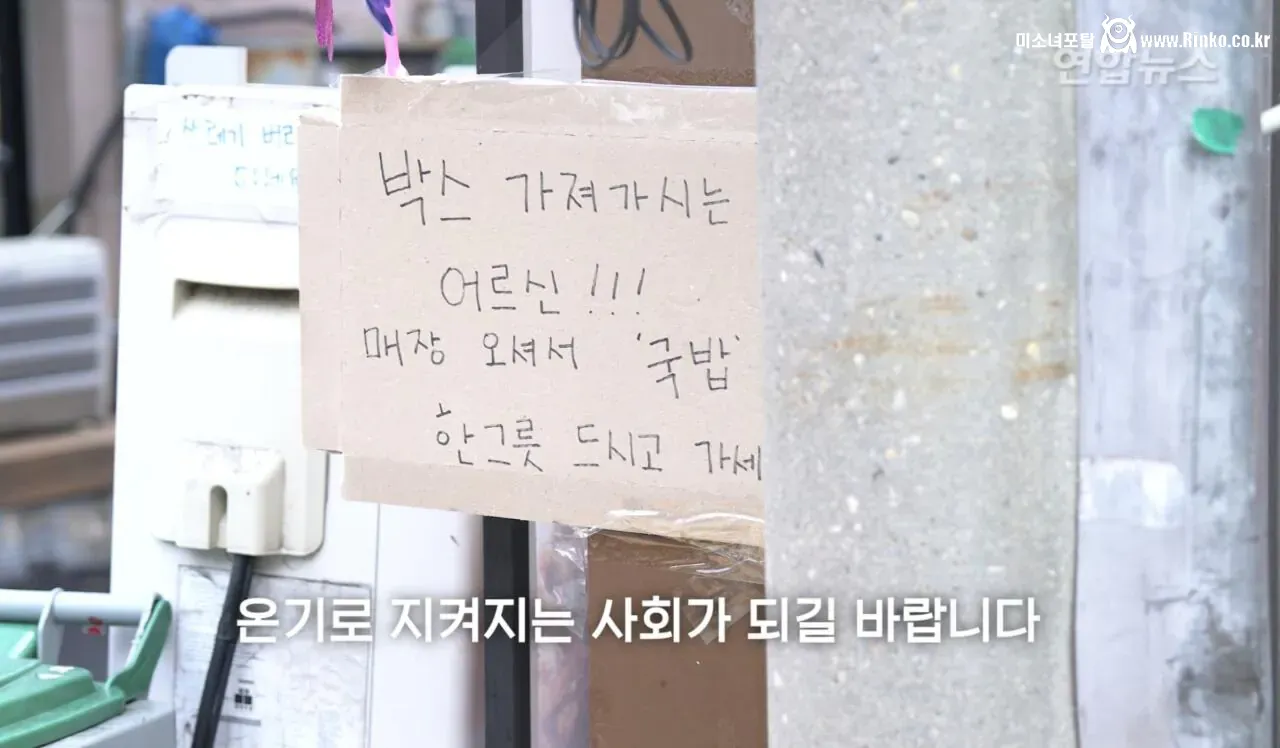 미소녀포탈 www.Rinko.co.kr
연합뉴스
쓰레기 버리
박스 가져가시는
어르신!!!
매장 오셔서 '국밥'
한그릇 드시고 가세
온기로 지켜지는 사회가 되길 바랍니다